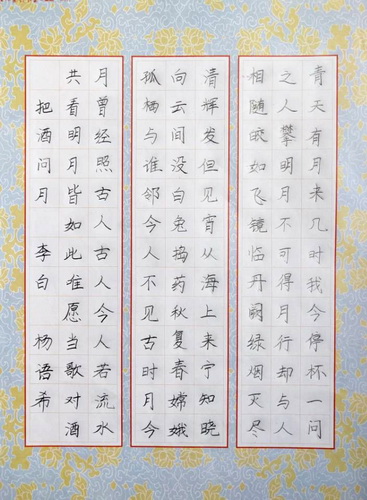 青天有月来几时我今停杯一问
之人攀明月不可得月行却与人
相随皎如飞镜临丹阙绿烟灭尽
清辉发但见宵从海上来宁知晓
向云间没白兔捣药秋复春嫦娥
孤栖与谁邻今人不见古时月今
月曾经照古人古人今人若流水
共看明月皆如此唯愿当歌对酒
把酒问月 李白 杨语希